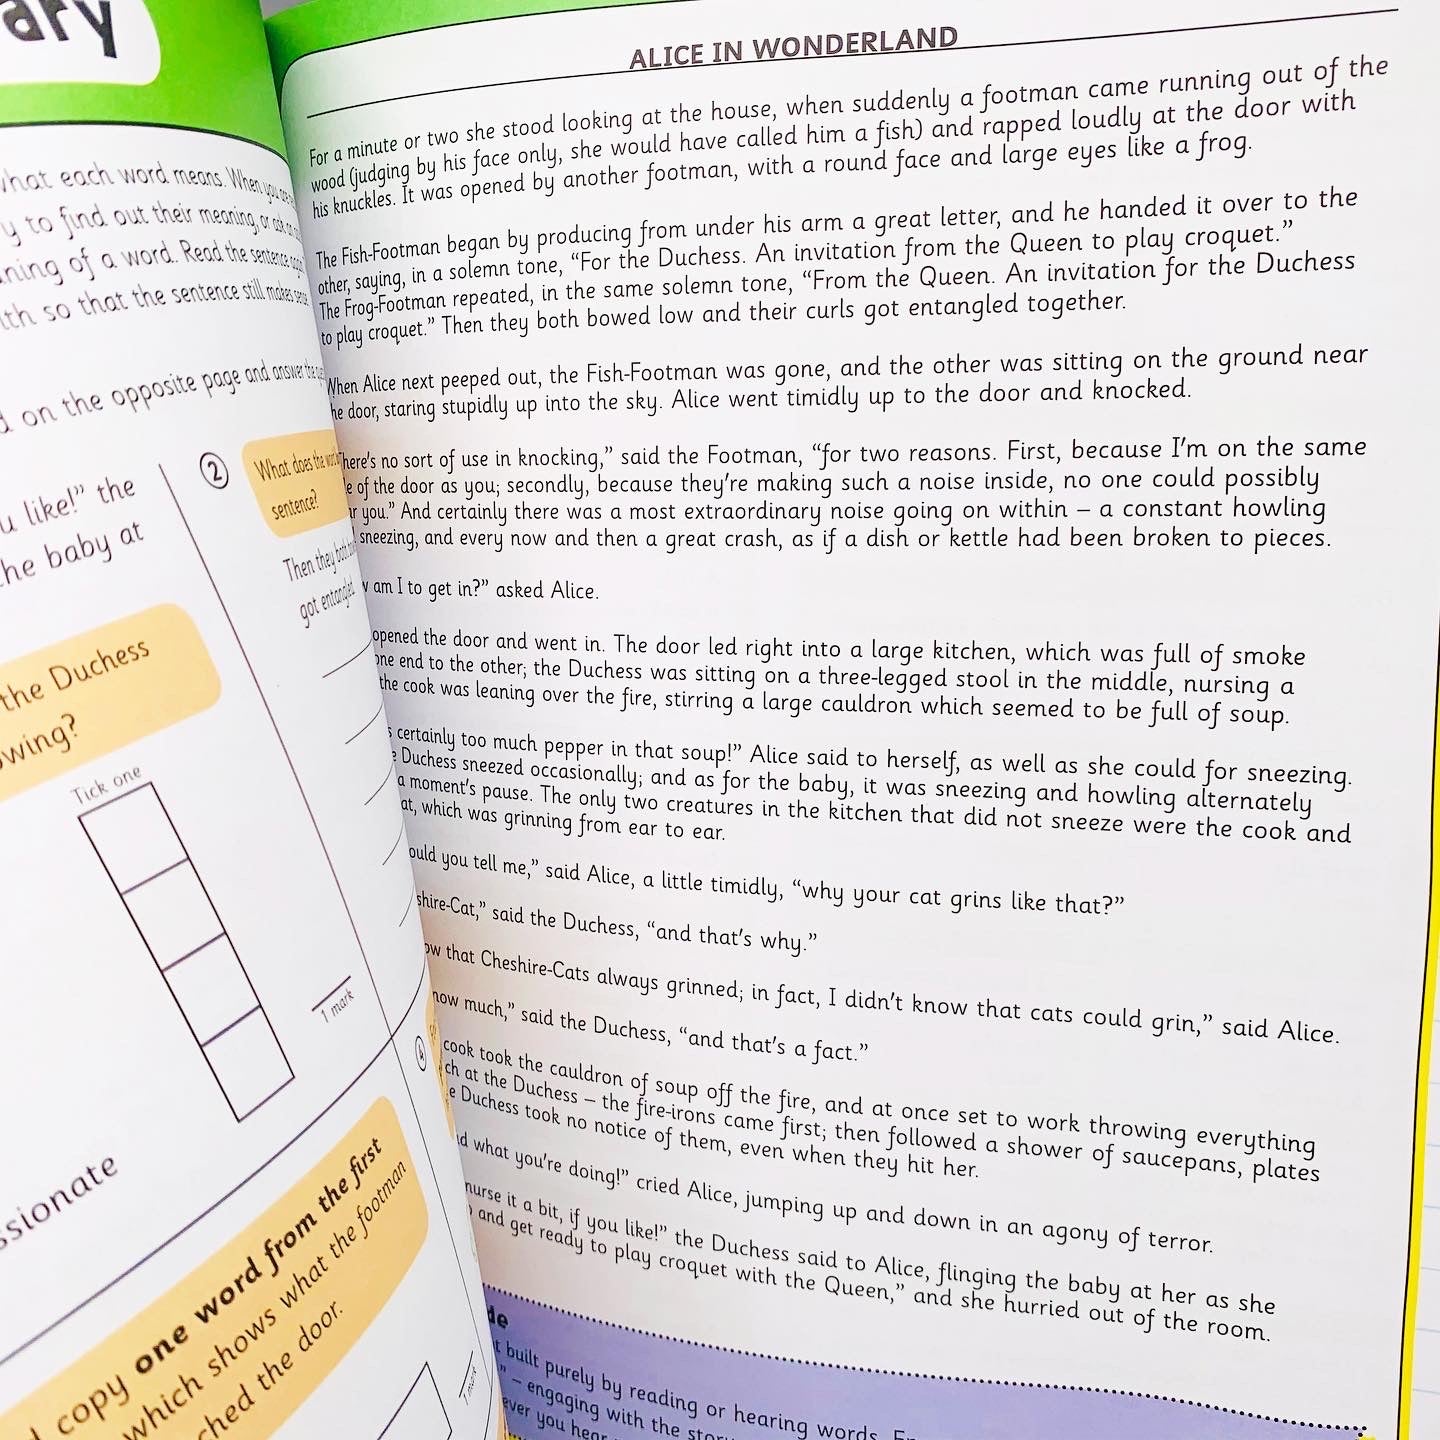 ary
what each word means. When you
y to find out their meaning, or ask
ning of a word. Read the sentence
ith so that the sentence still makes sense
d on the opposite page and answer the
u like!” the
he baby at
the Duchess
wing?
Tick one
1 mark
ssionate
copy one word from the first
which shows what the footman
ched the door.
2
What does the
sentence?
Then they both
got entangled
4
1 mark
ALICE IN WONDERLAND
For a minute or two she stood looking at the house, when suddenly a footman came running out of the
wood (judging by his face only, she would have called him a fish) and rapped loudly at the door with
his knuckles. It was opened by another footman, with a round face and large eyes like a frog.
The Fish-Footman began by producing from under his arm a great letter, and he handed it over to the
other, saying, in a solemn tone, “For the Duchess. An invitation from the Queen to play croquet.”
The Frog-Footman repeated, in the same solemn tone, “From the Queen. An invitation for the Duchess
to play croquet.” Then they both bowed low and their curls got entangled together.
When Alice next peeped out, the Fish-Footman was gone, and the other was sitting on the ground near
he door, staring stupidly up into the sky. Alice went timidly up to the door and knocked.
here’s no sort of use in knocking,” said the Footman, “for two reasons. First, because I’m on the same
e of the door as you; secondly, because they’re making such a noise inside, no one could possibly
r you.” And certainly there was a most extraordinary noise going on within – a constant howling
sneezing, and every now and then a great crash, as if a dish or kettle had been broken to pieces.
w am I to get in?” asked Alice.
opened the door and went in. The door led right into a large kitchen, which was full of smoke
one end to the other; the Duchess was sitting on a three-legged stool in the middle, nursing a
the cook was leaning over the fire, stirring a large cauldron which seemed to be full of soup.
s certainly too much pepper in that soup!” Alice said to herself, as well as she could for sneezing.
e Duchess sneezed occasionally; and as for the baby, it was sneezing and howling alternately
a moment’s pause. The only two creatures in the kitchen that did not sneeze were the cook and
at, which was grinning from ear to ear.
ould you tell me,” said Alice, a little timidly, “why your cat grins like that?”
shire-Cat,” said the Duchess, “and that’s why.”
ow that Cheshire-Cats always grinned; in fact, I didn’t know that cats could grin,” said Alice.
now much,” said the Duchess, “and that’s a fact.”
cook took the cauldron of soup off the fire, and at once set to work throwing everything
ch at the Duchess – the fire-irons came first; then followed a shower of saucepans, plates
e Duchess took no notice of them, even when they hit her.
d what you’re doing!” cried Alice, jumping up and down in an agony of terror.
nurse it a bit, if you like!” the Duchess said to Alice, flinging the baby at her as she
and get ready to play croquet with the Queen,” and she hurried out of the room.
de
t built purely by reading or hearing words.
” – engaging with the story
ever you hear